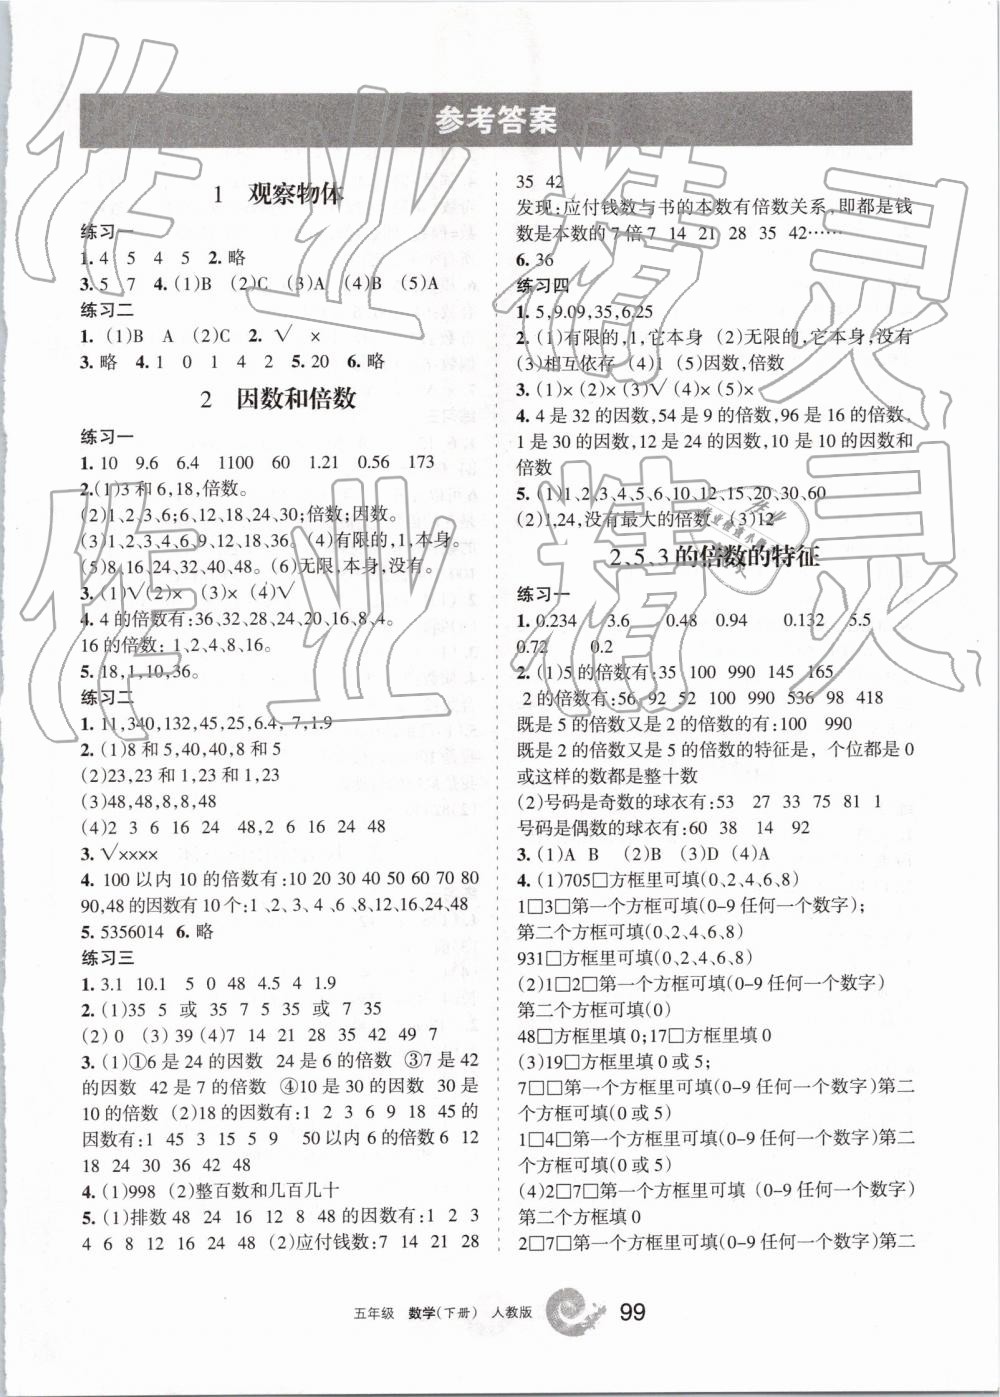 参考答案
1 观察物体
练习一
1.4 5 4 5 2.略
3.5 7 4.(1)B (2)C (3)A (4)B (5)A
练习二
1.(1)B A (2)C 2.√ ×
3.略 4.1 0 1 4 2 5.20 6.略
2 因数和倍数
练习一
1.10 9.6 6.4 1100 60 1.21 0.56 173
2.(1)3和6,18,倍数。
(2)1、2、3、6;6、12、18、24、30;倍数;因数。
(3)1、2、3、4、6、9、12、18、36。(4)有限的,1,本身。
(5)8、16、24、32、40、48。(6)无限,本身,没有。
3.(1)√(2)× (3)× (4)√
4.4的倍数有:36、32、28、24、20、16、8、4。
16的倍数: 1、2、4、8、16。
5.18,1,10,36。
练习二
1.11,340,132,45,25,6.4, 7,1.9
2.(1)8和5,40,40,8和5
(2)23,23和1,23和1,23
(3)48,48,8,8,48
(4)2 3 6 16 24 48,2 6 16 24 48
3.√××××
4.100以内10的倍数有:10 20 30 40 50 60 70 80
90,48的因数有10个:1、2、3、4 、6 、8、12、16、24、48
5.5356014 6.略
练习三
1.3.1 10.1 5 0 48 4.5 4 1.9
2.(1)35 5 或 35 7 5 35 或 7 35
(2)0 (3)39 (4)7 14 21 28 35 42 49 7
3.(1)①6是24的因数 24是6的倍数 ③7是42
的因数 42是7的倍数 ④10是30的因数 30是
10的倍数 (2)18的因数有:1 2 3 6 9 18 45的
因数有:1 45 3 15 5 9 50以内6的倍数6 12
18 24 30 36 42 48
4.(1)998 (2)整百数和几百几十
5.(1)排数48 24 16 12 8 48的因数有:1 2 3
4 6 8 12 16 24 48 (2)应付钱数:7 14 21 28
35 42
发现:应付钱数与书的本数有倍数关系,即都是钱
数是本数的7倍7 14 21 28 35 42……
6.36
练习四
1.5,9.09,35,6.25
2.(1)有限的,1,它本身 (2)无限的,它本身,没有
(3)相互依存 (4)1 (5)因数,倍数
3.(1)× (2)× (3)√ (4)× (5)×
4.4是32的因数,54是9的倍数,96是16的倍数,
1是30的因数,12是24的因数,10是10的因数和
倍数
5.(1)1、2、3、4、5、6、10、12、15、20、30、60
(2)1,24,没有最大的倍数 (3)12
2、5、3的倍数的特征
练习一
1.0.234 3.6 0.48 0.94 0.132 5.5
0.72 0.2
2.(1)5的倍数有:35 100 990 145 165
2的倍数有:56 92 52 100 990 536 98 418
既是5的倍数又是2的倍数的有:100 990
既是2的倍数又是5的倍数的特征是, 个位都是0
或这样的数都是整十数
(2)号码是奇数的球衣有:53 27 33 75 81 1
号码是偶数的球衣有:60 38 14 92
3.(1)A B (2)B (3)D (4)A
4.(1)705□方框里可填(0、2、4、6、8)
1□3□第一个方框可填(0-9任何一个数字);
第二个方框可填(0、2、4、6、8)
931□方框里可填(0、2、4、6、8)
(2)1□2□第一个方框可填(0-9任何一个数字)
第二个方框可填(0)
48□方框里填0;17□方框里填0
(3)19□方框里填0或5;
7□□第一个方框里可填(0-9任何一个数字)第二
个方框可填(0或5)
1□4□第一个方框里可填(0-9任何一个数字)第二
个方框可填(0或5)
(4)2□7□第一个方框里可填 (0-9任何一个数字)
第二个方框填0
2□7□第一个方框里可填(0-9任何一个数字)第二
五年级 数学(下册) 人教版 99
作业精灵
作业精灵